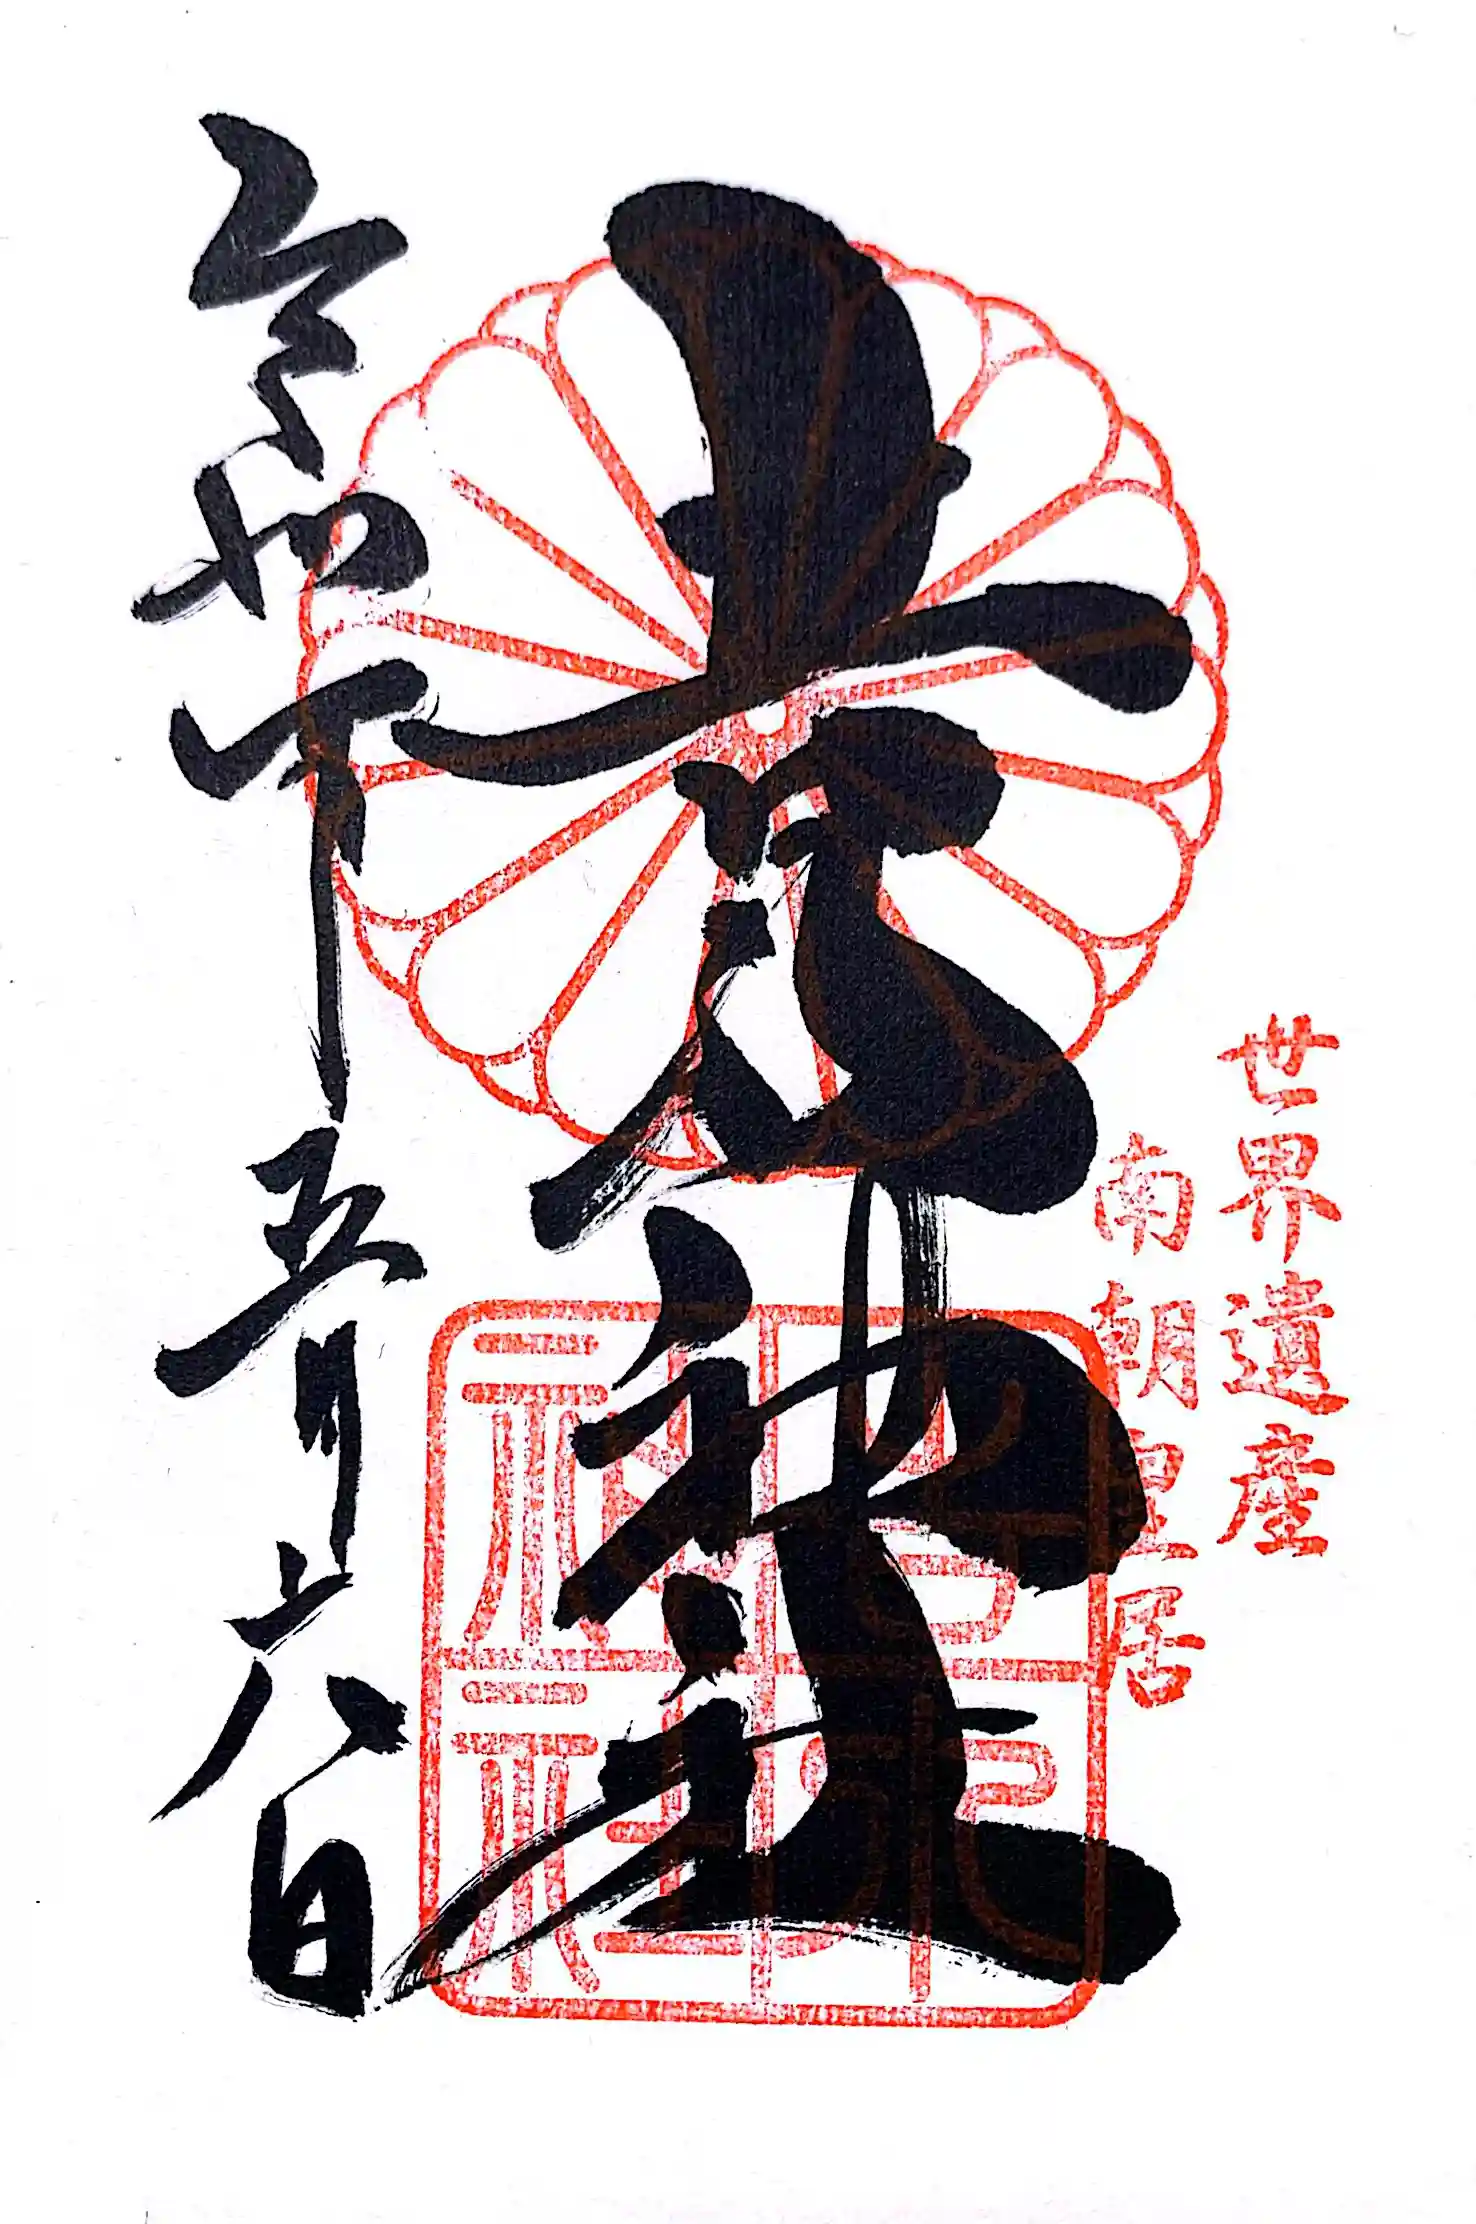 世界遺産
南朝皇居
吉水神社
吉水神社
令和年五月六日